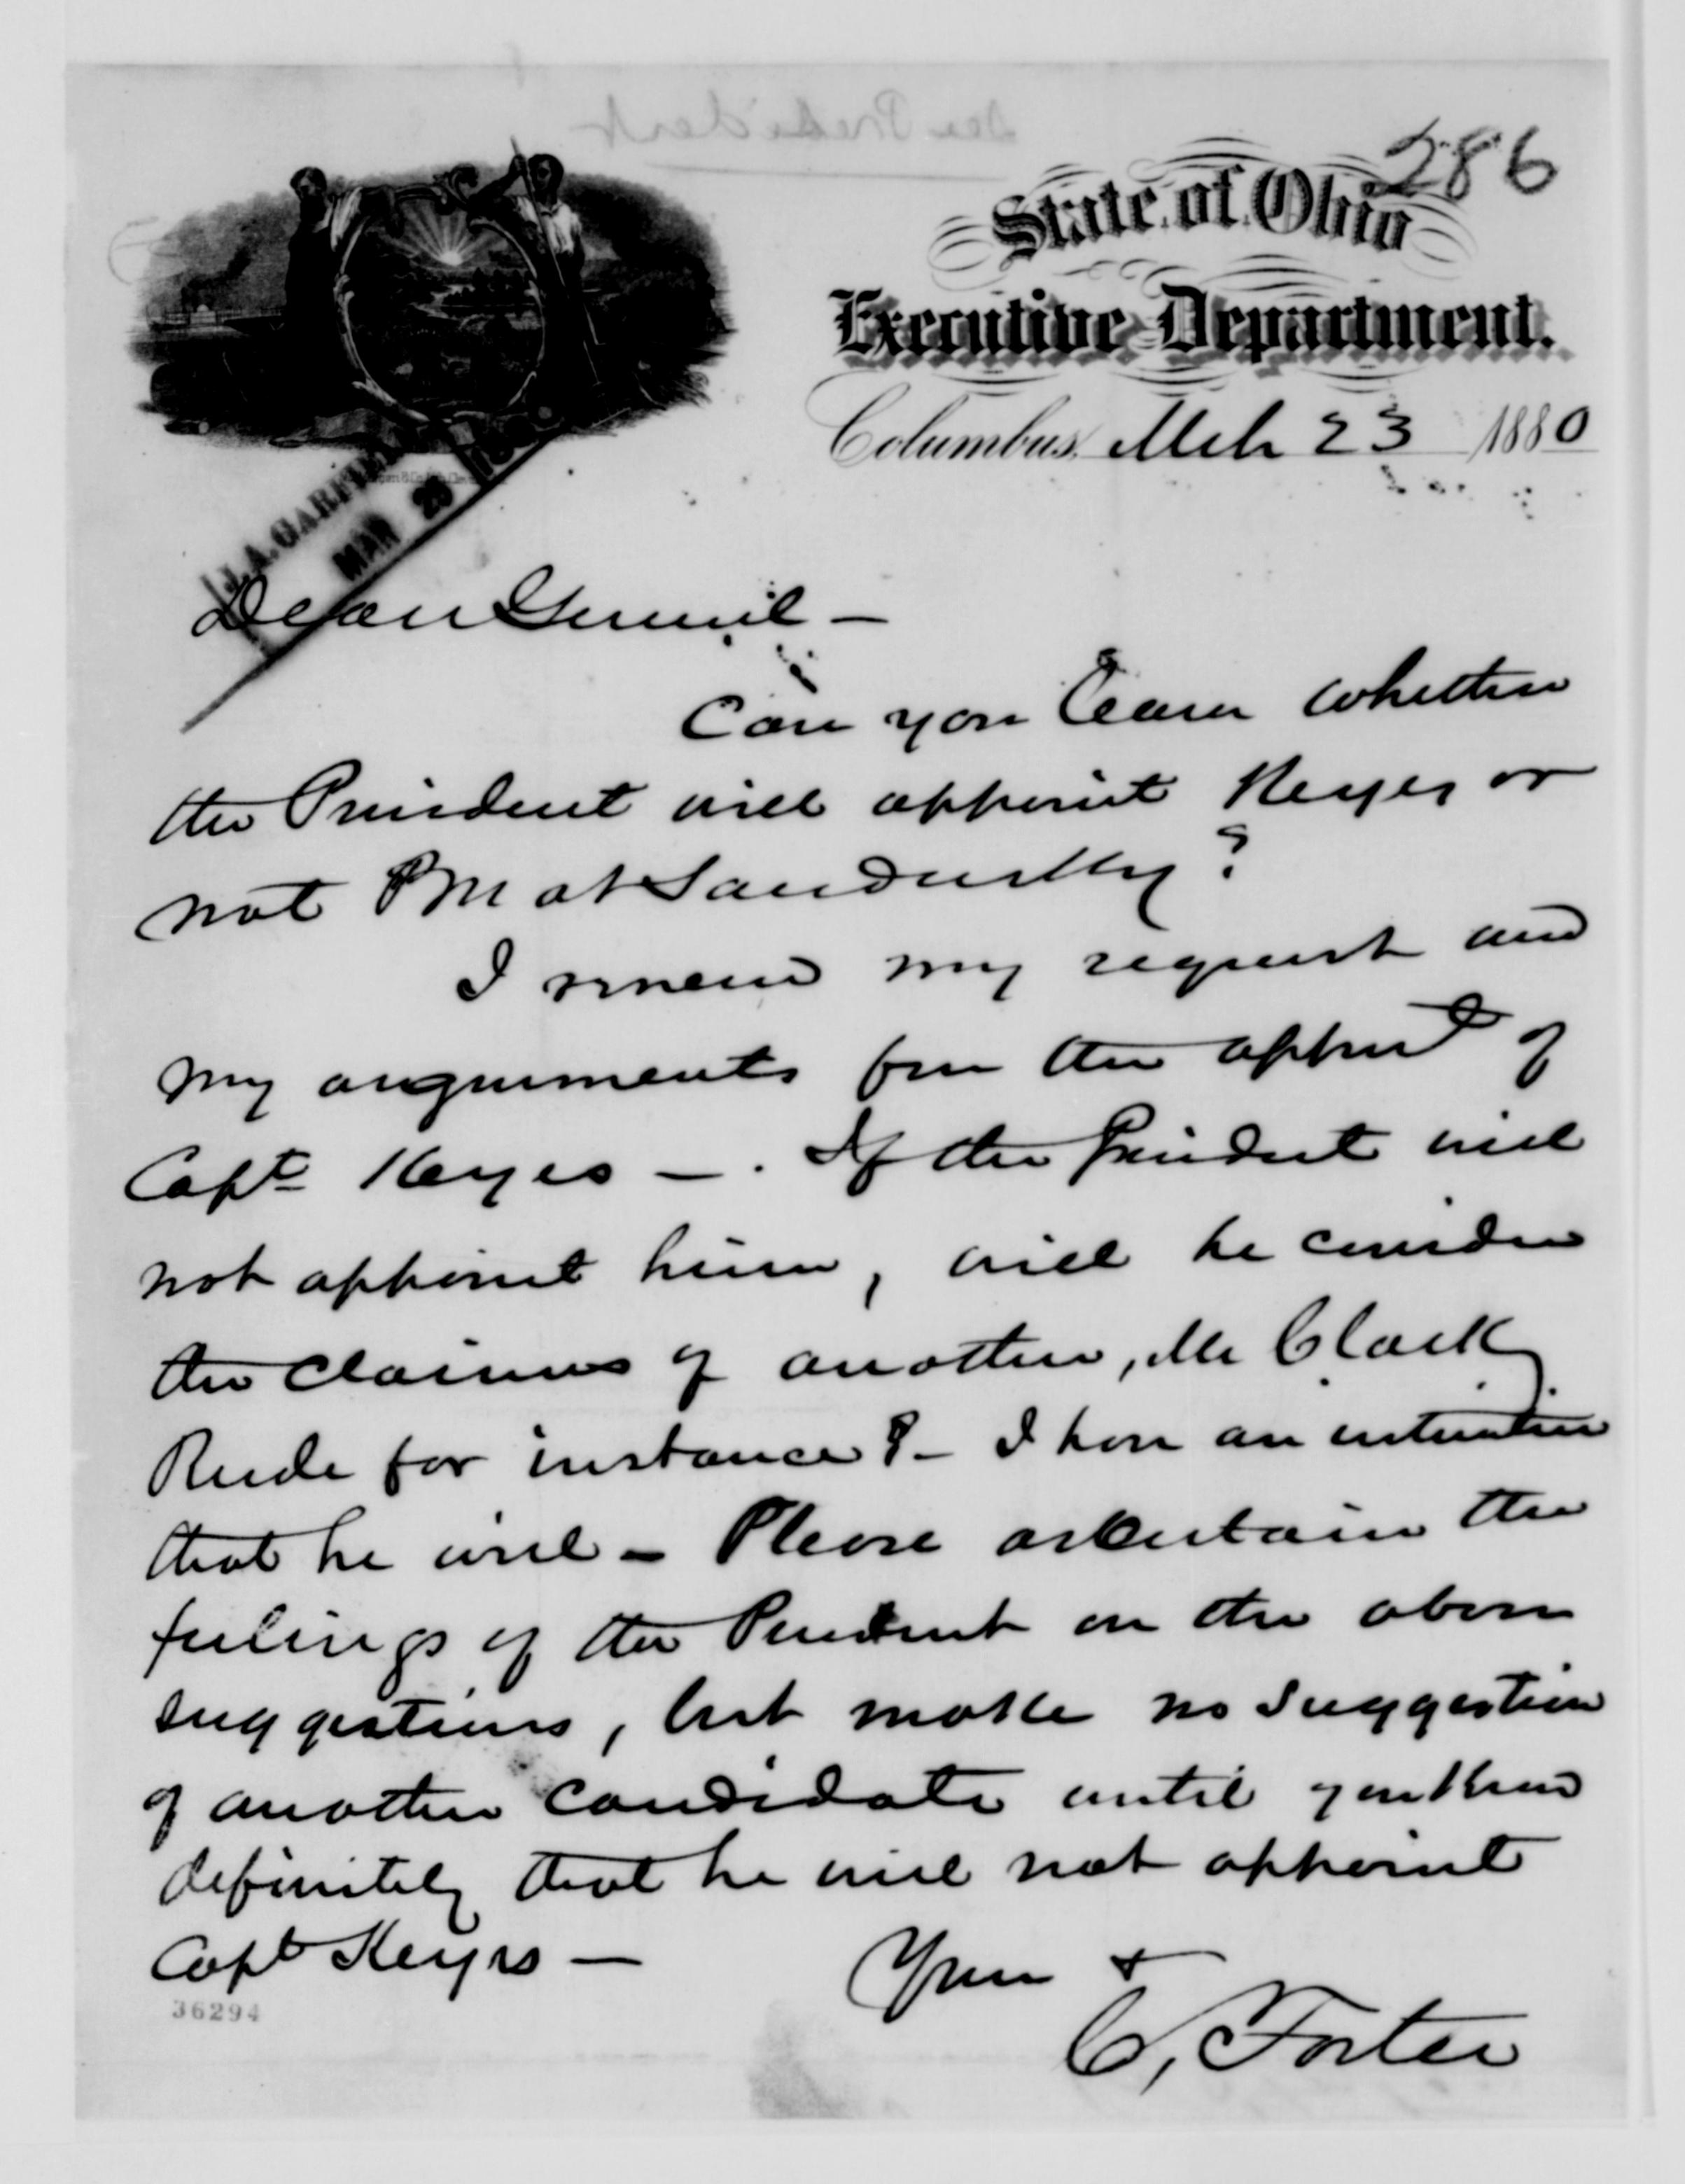 286
State of Ohio
Executive Department.
Columbus, Mch 23 1880
J.A. GARFIELD
MAR 25
Dear General —
Can you learn whether
the President will appoint Keyes or
not P M at Sandusky?
I renew my request and
my arguments for the appmt of
Capt Keyes —. If the President will
not appoint him, will he consider
the claims of another, Mr Clark
Rude for instance? — I have an intimation
that he will — Please ascertain the
feelings of the President on the above
suggestions, but make no suggestion
of another candidate until you know
definitely that he will not appoint
Capt Keyes —
Yours +
C, Foster
36294